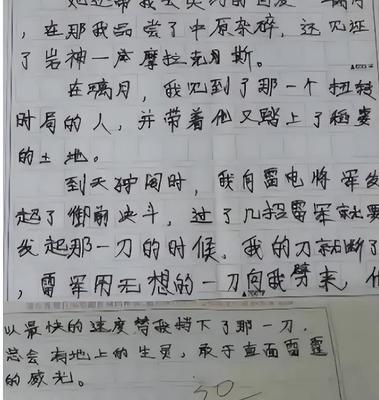 她还带我去契约的国度
，在那我品尝了中原杂碎，还见证
了岩神一 摩拉克斯。
在璃月，我见到了那一个扭转
时局的人，并带着他又踏上了稻妻
的土地。
到天狩阁时，我向雷电将军发
起了御前决斗，过了几招雷军就要
发起那一刀的时候，我的刀就断了
，雷军用无想的一刀向我劈来，他
以最快的速度替我挡下了那一刀．
总会有地上的生灵，敢于直面雷霆
的威光。
50